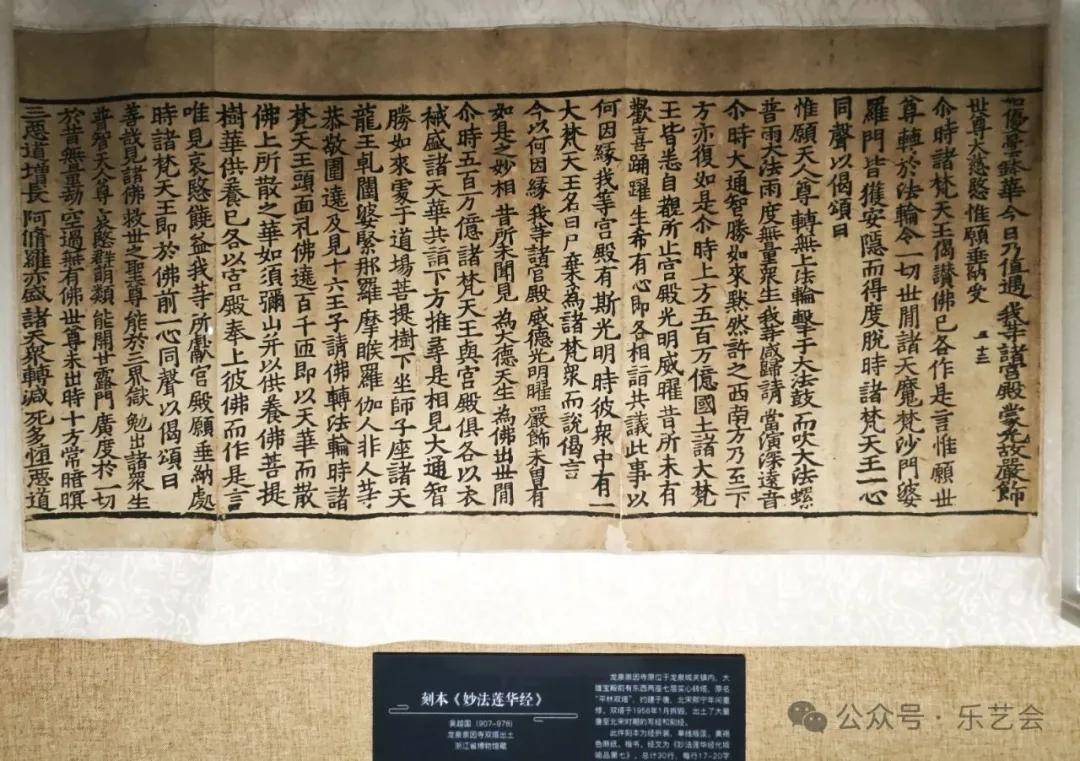 如優曇鉢華今日乃值遇 我等諸宮殿 蒙光故嚴飾
世尊大慈愍 惟願垂納受
尒時諸梵天王偈讚佛已各作是言惟願世
尊轉於法輪令一切世間諸天魔梵沙門婆
羅門皆獲安隱而得度脫時諸梵天王一心
同聲以偈頌曰
惟願天人尊 轉無上法輪 擊于大法鼓 而吹大法螺
普雨大法雨 度無量眾生 我等咸歸請 當演深遠音
尒時大通智勝如來默然許之西南方乃至下
方亦復如是尒時上方五百万億國土諸大梵
王皆悉自覩所止宮殿光明威曜昔所未有
歡喜踊躍生希有心即各相詣共議此事以
何因緣我等宮殿有斯光明時彼眾中有一
大梵天王名曰尸棄為諸梵眾而說偈言
今以何因緣 我等諸宮殿 威德光明曜 嚴飾未曾有
如是之妙相 昔所未聞見 為大德天生 為佛出世間
尒時五百万億諸梵天王與宮殿俱各以衣
祴盛諸天華共詣下方推尋是相見大通智
勝如來處于道場菩提樹下坐師子座諸天
龍王乹闥婆緊那羅摩睺羅伽人非人等
恭敬圍遶及見十六王子請佛轉法輪時諸
梵天王頭面礼佛遶百千匝即以天華而散
佛上所散之華如須彌山并以供養佛菩提
樹華供養已各以宮殿奉上彼佛而作是言
唯見哀愍饒益我等所獻宮殿願垂納處
時諸梵天王即於佛前一心同聲以偈頌曰
善哉見諸佛 救世之聖尊 能於三界獄 勉出諸眾生
普智天人尊 哀愍群萌類 能開甘露門 廣度於一切
於昔無量劫 空過無有佛 世尊未出時 十方常暗瞑
三惡道增長 阿修羅亦盛 諸天眾轉減 死多墮惡道
刻本《妙法莲华经》
吴越国（907-978）
龙泉崇因寺双塔出土
浙江省博物馆藏
龙泉崇因寺原位于龙泉城关镇内，大
雄宝殿前有东西两座七层实心砖塔，原名
“平林双塔”，约建于唐，北宋熙宁年间重
修，双塔于1956年1月拆毁，出土了大量
唐至北宋时期的写经和刻经。
此件刻本为经折装，单线版框，黄褐
色麻纸，楷书，经文为《妙法莲华经化城
喻品第七》，总计30行，每行17-20字
公众号 · 乐艺会